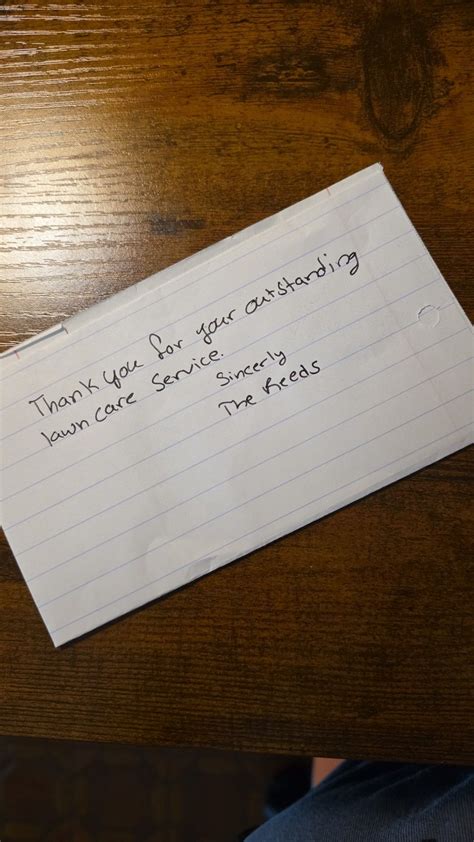 Thank you for your outstanding
lawn care service.
Sincerly
The Reeds